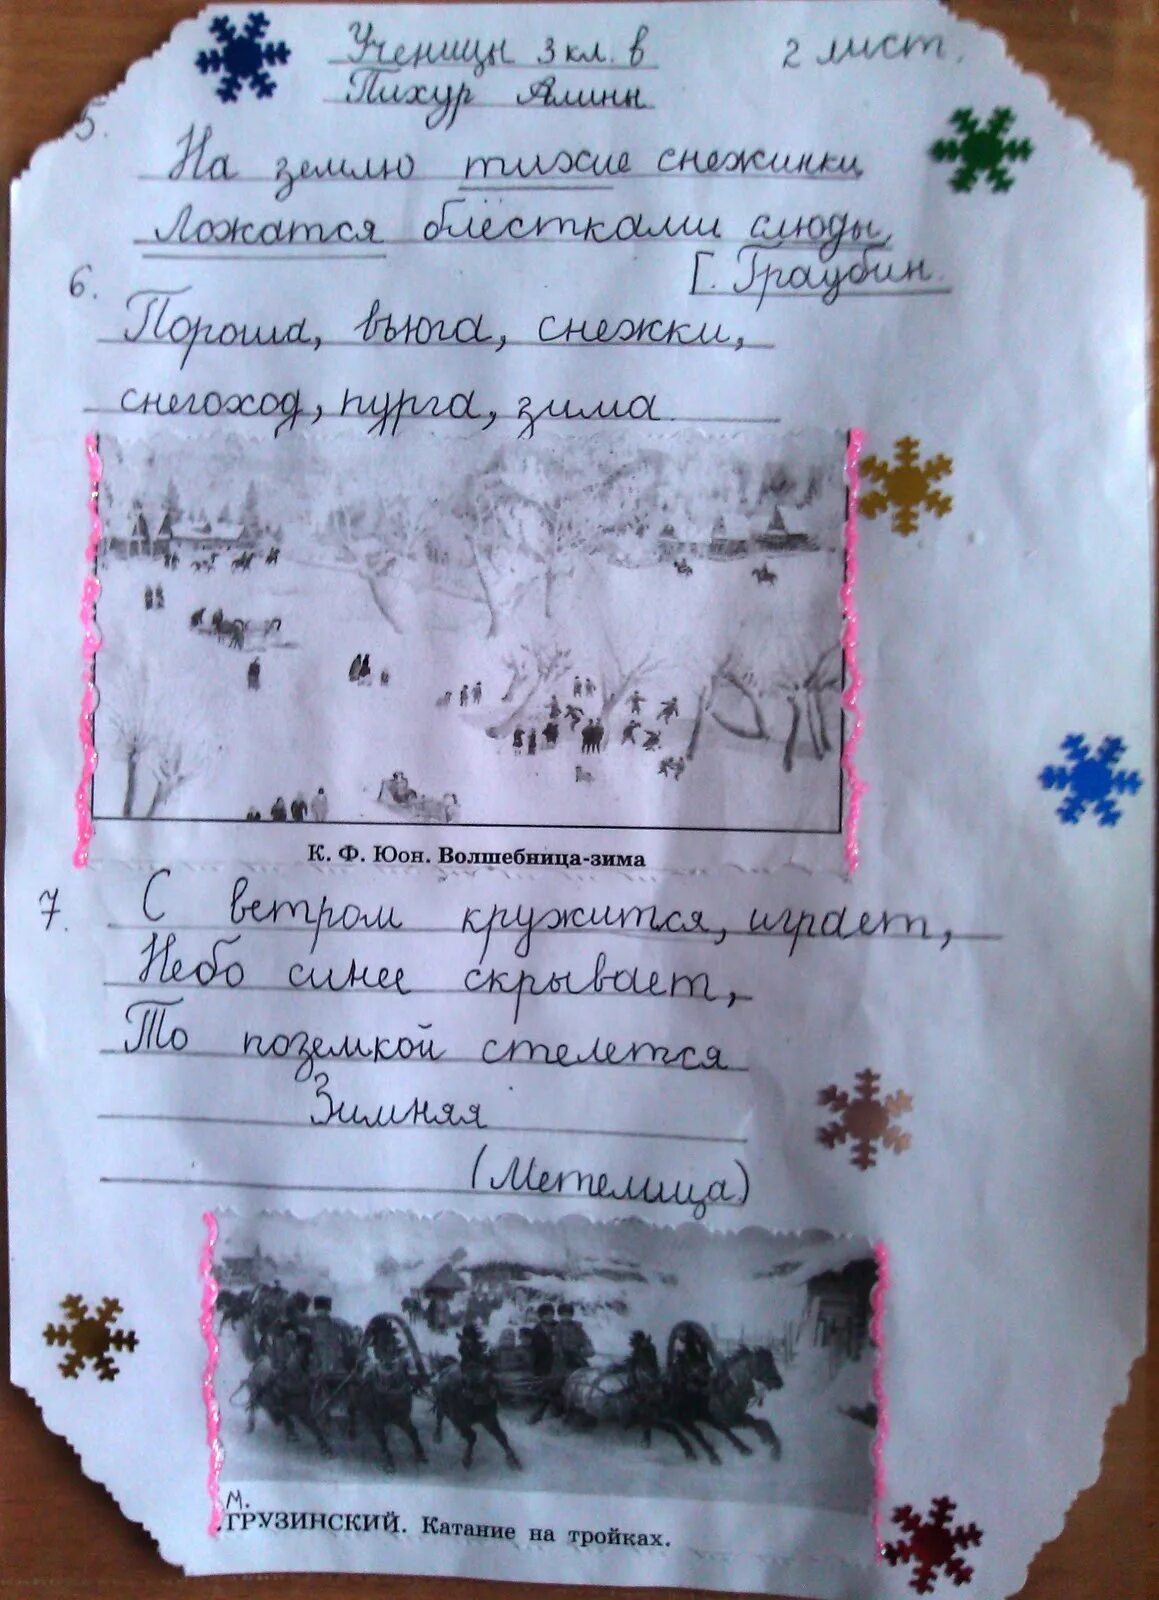 Ученицы 3 кл. в
2 лист.
Пихур Алины
5.
На землю тихие снежинки
Ложатся блёстками слюды,
Г. Граубин.
6.
Пороша, вьюга, снежки,
снегоход, пурга, зима.
К. Ф. Юон. Волшебница-зима
7.
С ветром кружится, играет,
Небо синее скрывает,
То поземкой стелется
Зимняя
(Метелица)
М.
ГРУЗИНСКИЙ. Катание на тройках.